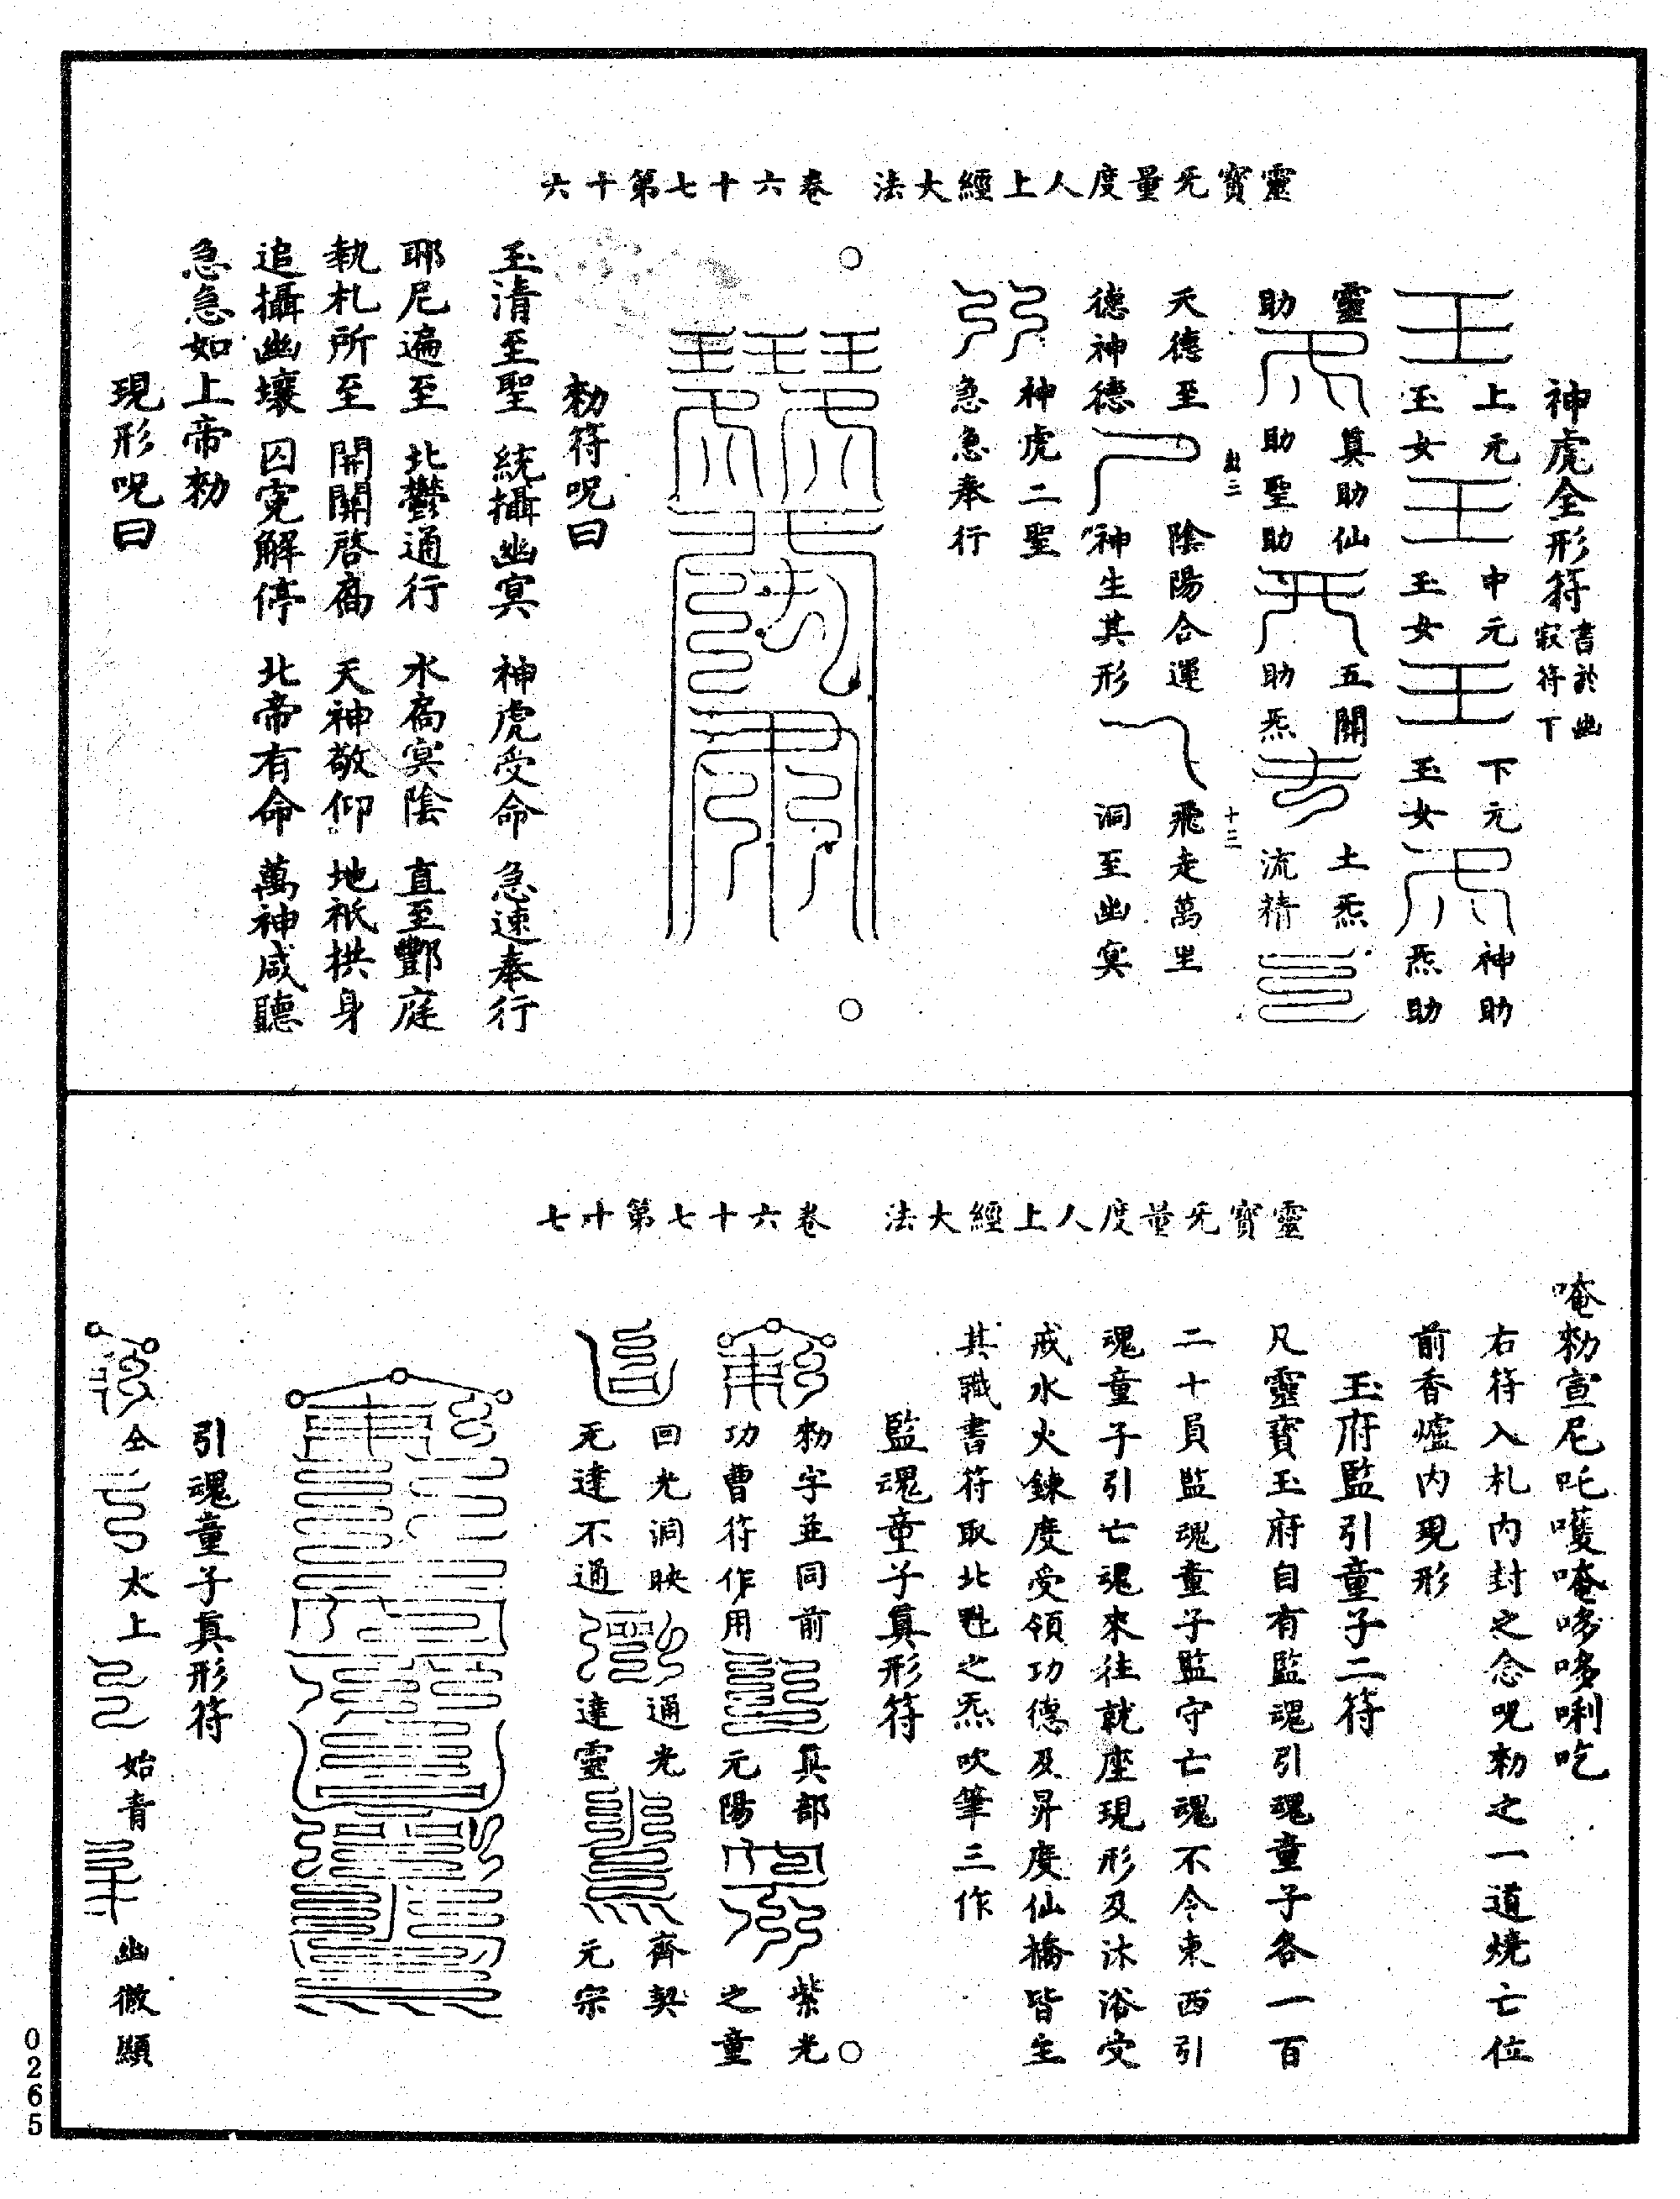 靈寶旡量度人上經大法 卷六十七第十六
神虎全形符書於幽寂符下
上元玉女 中元玉女 下元玉女 神助炁助
靈助 真助仙助聖助 五開助炁 土炁流精
天德至德神德 陰陽合運神生其形 飛走萬里洞至幽冥
神虎二聖急急奉行
十三
勑符呪曰
玉清至聖 統攝幽冥 神虎受命 急速奉行
耶尼遍至 北鬱通行 水扃冥陰 直至酆庭
執札所至 開關啓扃 天神敬仰 地祇拱身
追攝幽壤 囚冤解停 北帝有命 萬神咸聽
急急如上帝勑
現形呪曰
靈寶旡量度人上經大法 卷六十七第十七
唵勑宣尼吒嚄唵哆哆唎吃
右符入札内封之念呪勑之一道燒亡位
前香爐内現形
玉府監引童子二符
凡靈寶玉府自有監魂引魂童子各一百
二十員監魂童子監守亡魂不令東西引
魂童子引亡魂來往就座現形及沐浴受
戒水火鍊度受領功德及昇度仙橋皆主
其職書符取北魁之炁吹筆三作
監魂童子真形符
勑字並同前功曹符作用 真部元陽 紫光之童
回光洞映旡達不通 通光達靈 齊契元宗
引魂童子真形符
仝 太上 始青 幽微顯
0265